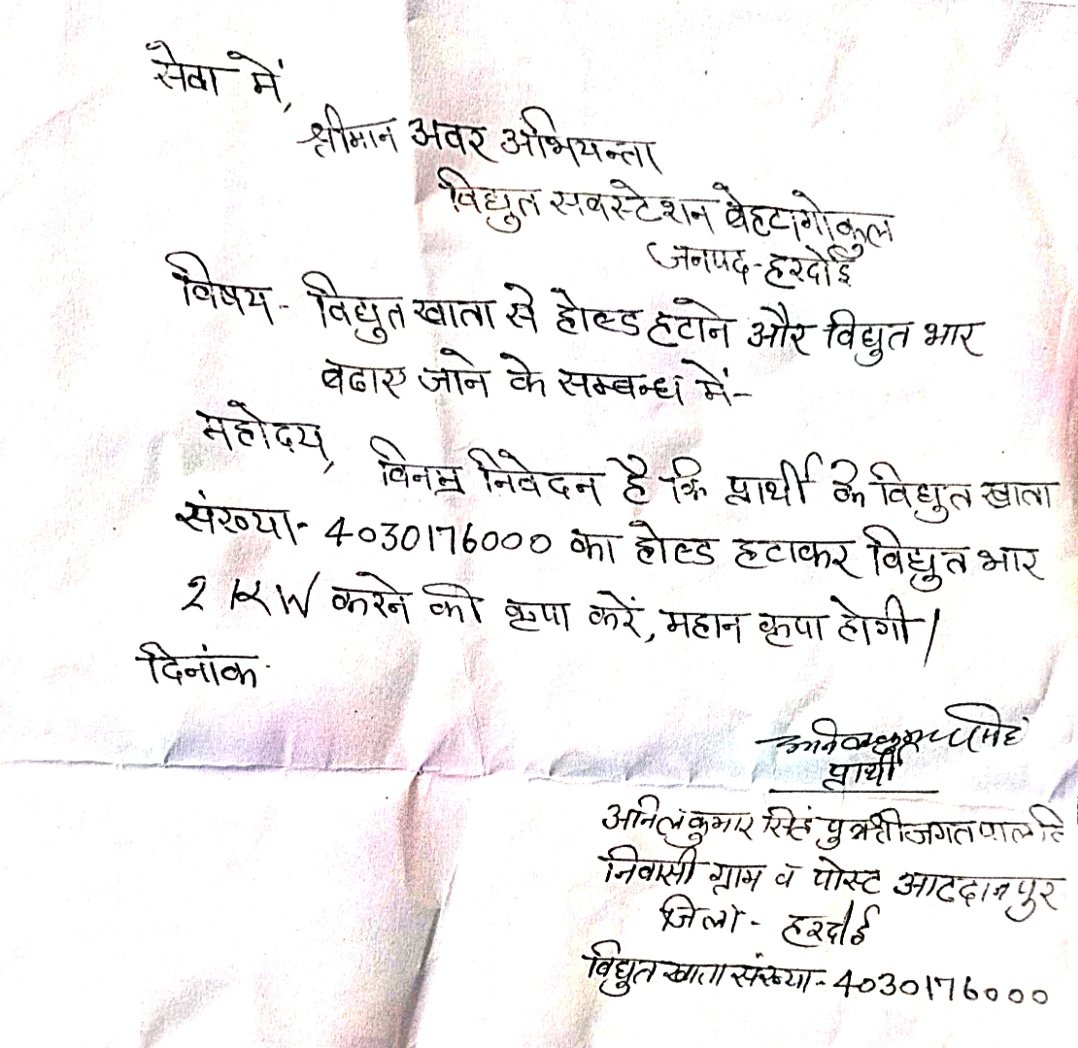 सेवा में,
श्रीमान अवर अभियन्ता
विद्युत सबस्टेशन बेहटागोकुल
जनपद-हरदोई
विषय- विद्युत खाता से होल्ड हटाने और विद्युत भार
बढाए जाने के सम्बन्ध में-
महोदय,
विनम्र निवेदन है कि प्रार्थी के विद्युत खाता
संख्या- 4030176000 का होल्ड हटाकर विद्युत भार
2 KW करने की कृपा करें, महान कृपा होगी।
दिनांक
अनिल कुमार सिंह
प्रार्थी
अनिल कुमार सिंह पुत्र श्री जगतपाल
निवासी ग्राम व पोस्ट आटदानपुर
जिला- हरदोई
विद्युत खाता संख्या- 4030176000